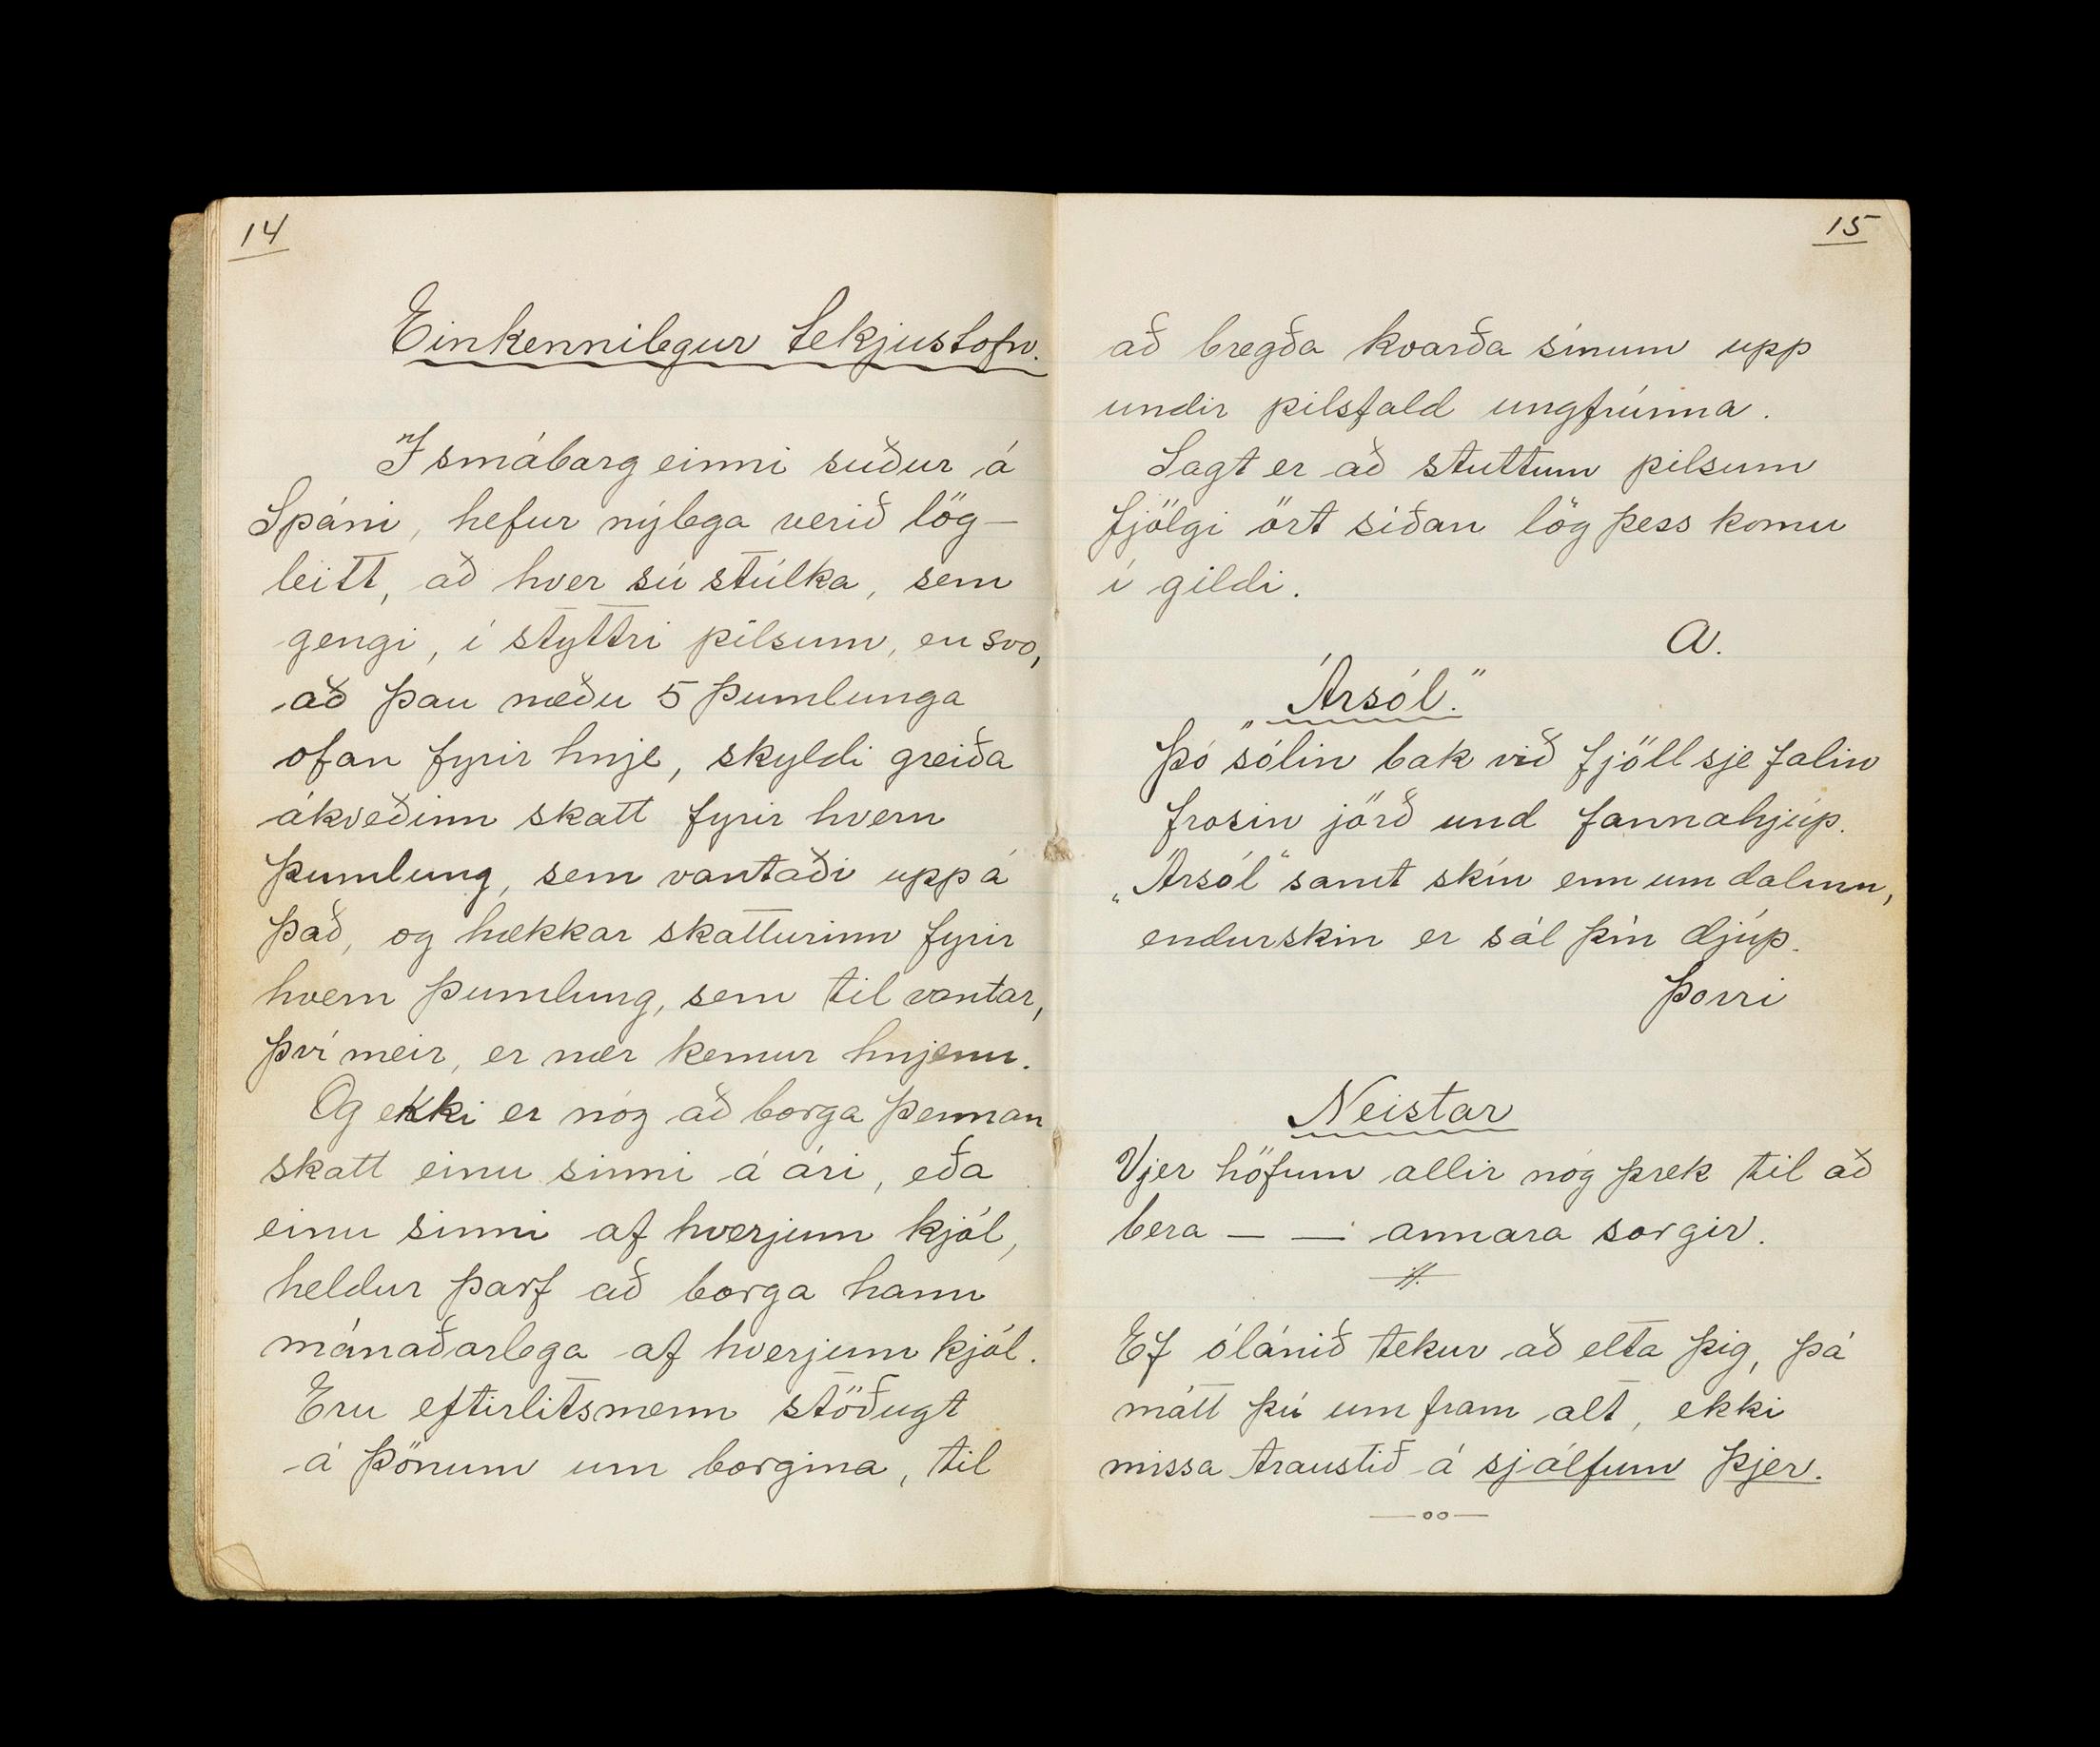 14
Einkennilegur tekjustofn.
Í smáborg einni suður á
Spáni, hefur nýlega verið lög-
leitt, að hver sú stúlka, sem
gengi, í styttri pilsum, en svo,
að þau næðu 5 þumlunga
ofan fyrir hnje, skyldi greiða
ákveðinn skatt fyrir hvern
þumlung, sem vantaði uppá
það, og hækkar skatturinn fyrir
hvern þumlung, sem til vantar,
því meir, er nær kemur hnjenu.
Og ekki er nóg að borga þennan
skatt einu sinni á ári, eða
einu sinni af hverjum kjól,
heldur þarf að borga hann
mánaðarlega af hverjum kjól.
Eru eftirlitsmenn stöðugt
á þönum um borgina, til
15
að bregða kvarða sínum upp
undir pilsfald ungfrúnna.
Sagt er að stuttum pilsum
fjölgi ört síðan lög þess komu
í gildi.
A.
„Ársól."
Þó sólin bak við fjöll sje falin
frosin jörð und fannahjúp.
„Ársól" samt skín enn um dalinn,
endurskin er sál þín djúp.
Þorri
Neistar
Vjer höfum allir nóg þrek til að
bera — — annara sorgir.
Ef ólánið tekur að elta þig, þá
mátt þú um fram alt, ekki
missa traustið á sjálfum þjer.